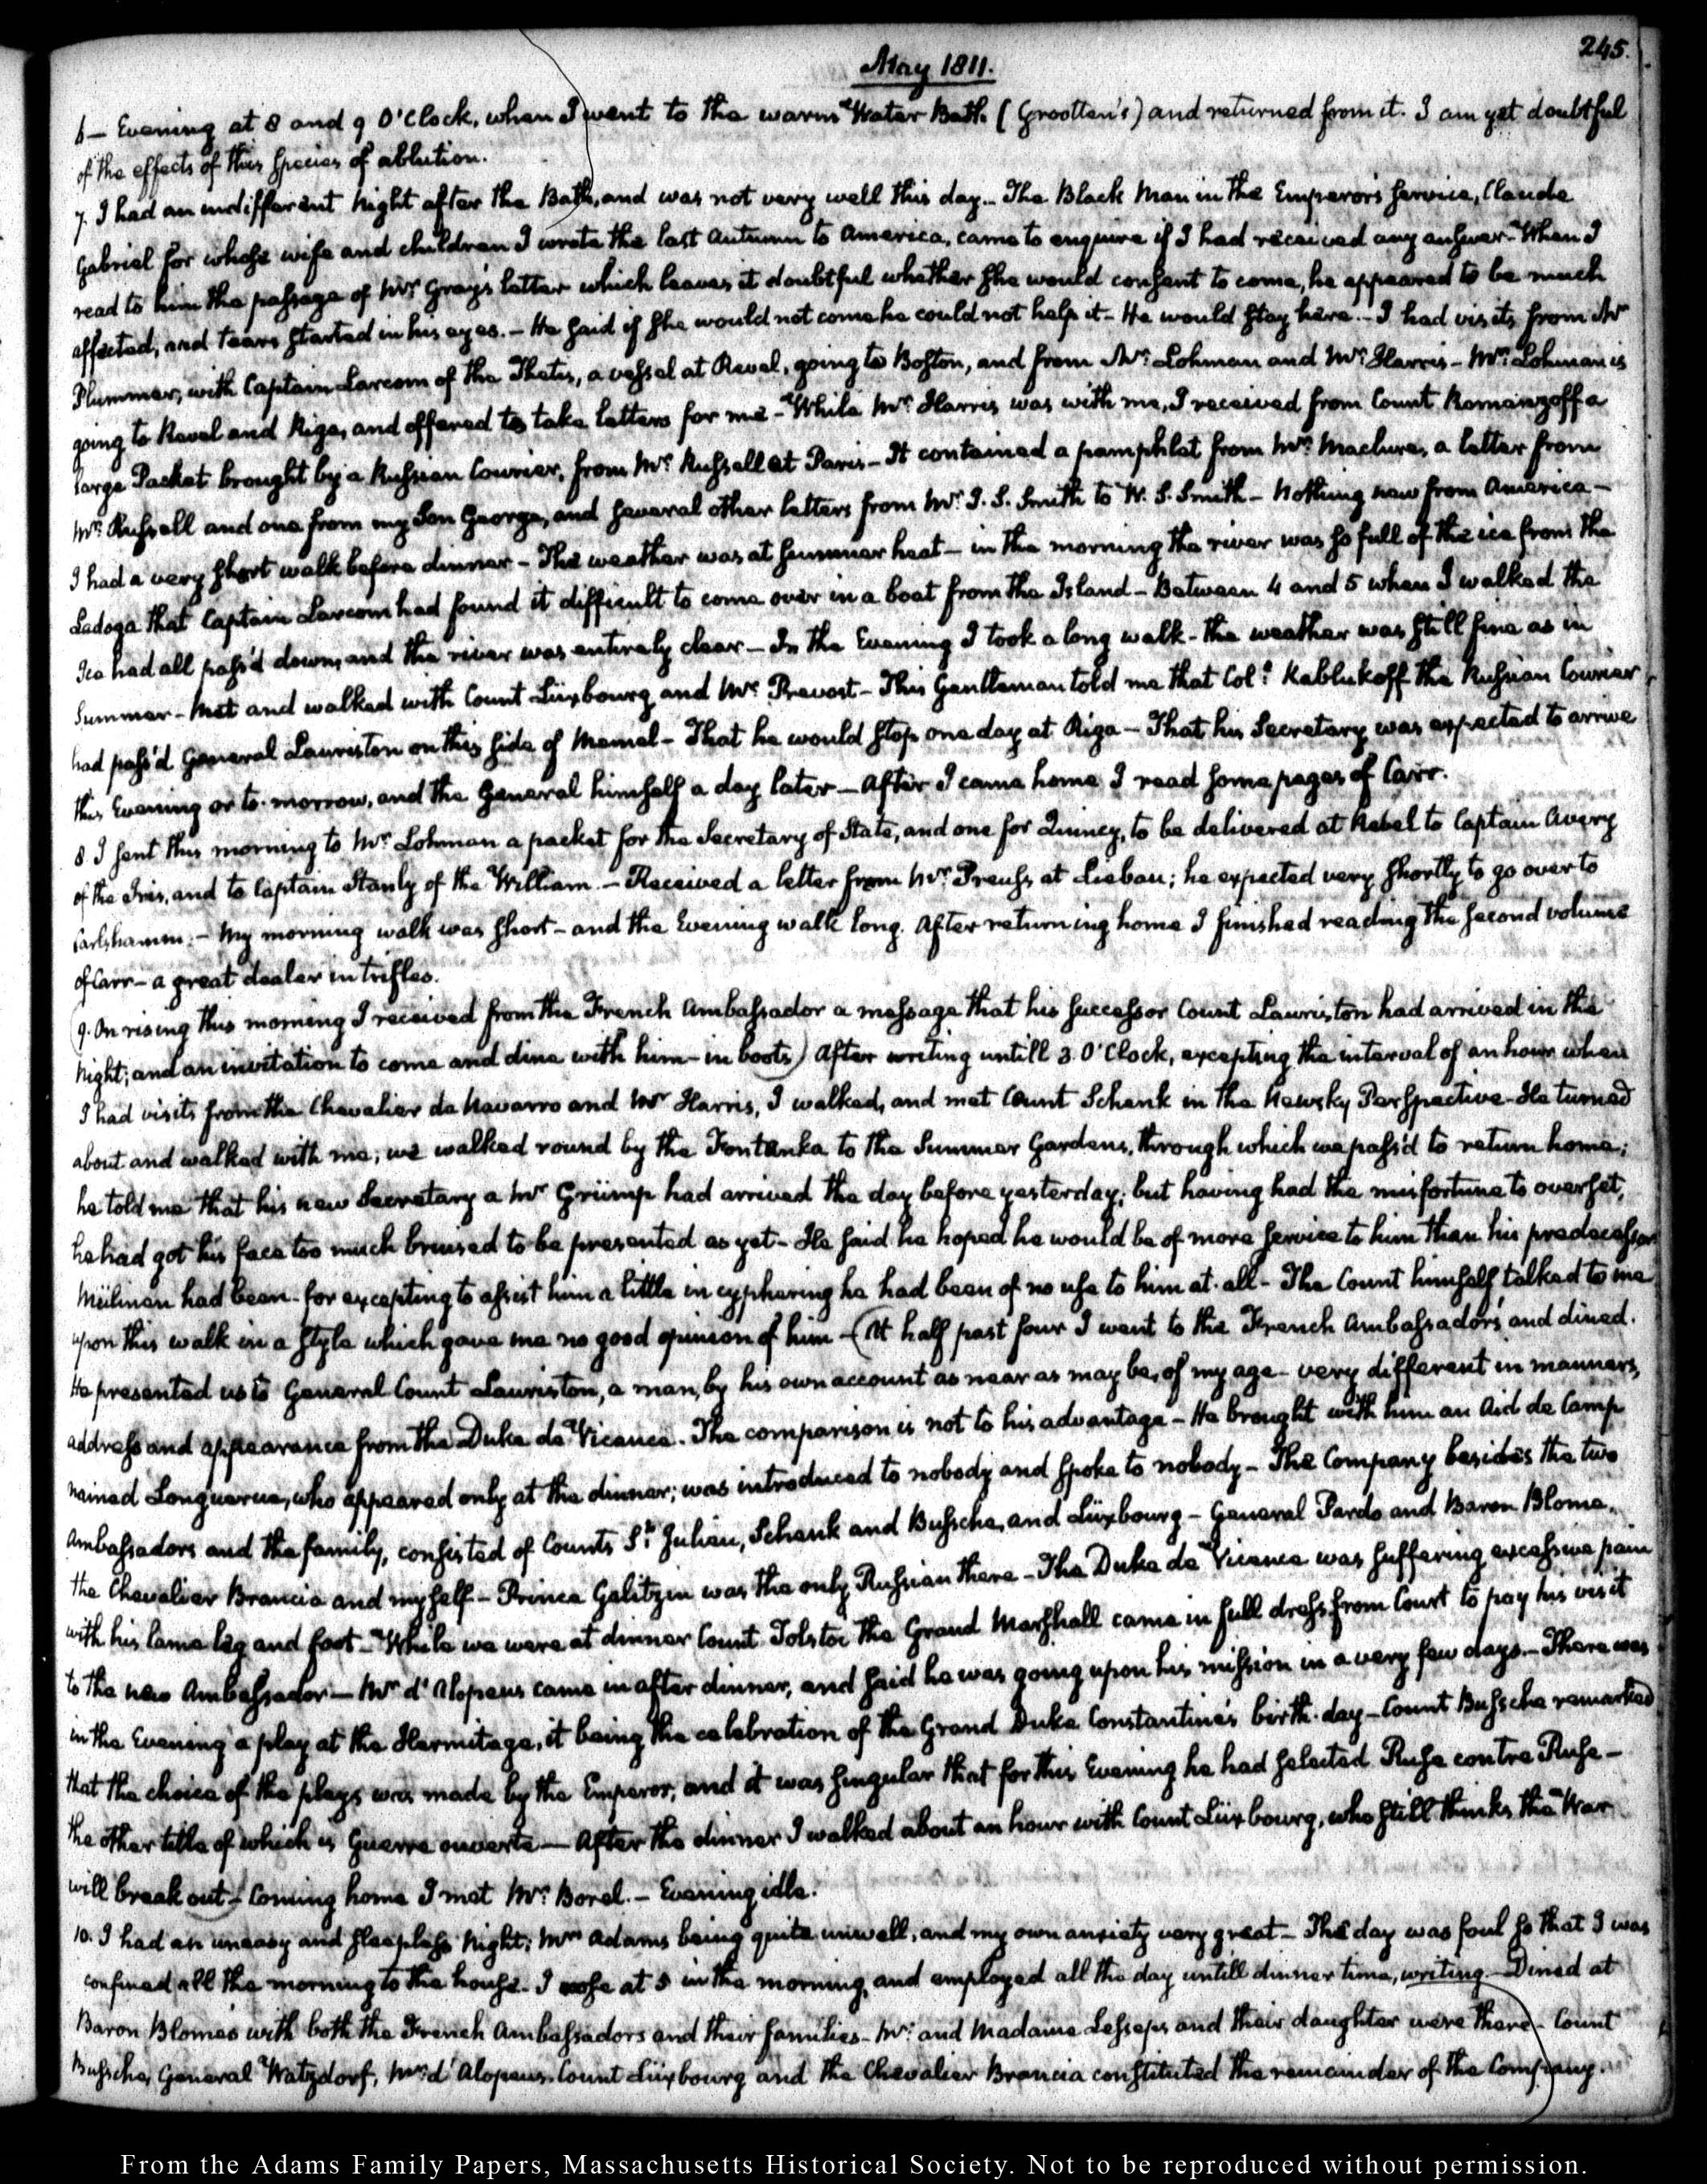 245.
May 1811.
6 — Evening at 8 and 9 O'Clock, when I went to the warm Water Bath (Grootten's) and returned from it. I am yet doubtful
of the effects of this species of ablution.
7. I had an indifferent night after the Bath, and was not very well this day.. The Black Man in the Emperor's service, Claude
Gabriel for whose wife and children I wrote the last Autumn to America, came to enquire if I had received any answer - When I
read to him the passage of Mr. Gray's letter which leaves it doubtful whether she would consent to come, he appeared to be much
affected, and tears started in his eyes. - He said if she would not come he could not help it - He would stay here. - I had visits from Mr.
Plummer, with Captain Larcom of the Thetis, a vessel at Reval, going to Boston, and from Mr. Lohman and Mr. Harris - Mr. Lohman is
going to Reval and Riga, and offered to take letters for me - While Mr. Harris was with me, I received from Count Romanzoff a
large Packet brought by a Russian Courier, from Mr. Russell at Paris - It contained a pamphlet from Mr. Maclure, a letter from
Mr. Russell and one from my Son George, and several other letters from Mr. J. S. Smith to W. S. Smith - Nothing new from America -
I had a very short walk before dinner - The weather was at summer heat - in the morning the river was so full of the ice from the
Ladoga that Captain Larcom had found it difficult to come over in a boat from the Island - Between 4 and 5 when I walked the
Ice had all pass'd down, and the river was entirely clear - In the Evening I took a long walk - the weather was still fine as in
Summer - Met and walked with Count Lüxbourg and Mr. Prevost - This Gentleman told me that Col: Kablukoff the Russian Courier
had pass'd General Lauriston on this side of Memel - That he would stop one day at Riga - That his Secretary was expected to arrive
this Evening or to-morrow, and the General himself a day later - After I came home I read some pages of Carr.
8 I sent this morning to Mr. Lohman a packet for the Secretary of State, and one for Quincy, to be delivered at Rebel to Captain Avery
of the Iris, and to Captain Stanly of the William. - Received a letter from Mr. Preuss at Liebau; he expected very shortly to go over to
Carlshamm. - My morning walk was short - and the Evening walk long. After returning home I finished reading the second volume
of Carr - a great dealer in trifles.
9. On rising this morning I received from the French Ambassador a message that his successor Count Lauriston had arrived in the
night; and an invitation to come and dine with him - in boots) After writing untill 3 O'Clock, excepting the interval of an hour when
I had visits from the Chevalier de Navarro and Mr Harris, I walked, and met Count Schenk in the Newsky Perspective - He turned
about and walked with me; we walked round by the Fontanka to the Summer Gardens, through which we pass'd to return home;
he told me that his new Secretary a Mr Grümp had arrived the day before yesterday; but having had the misfortune to overset,
he had got his face too much bruised to be presented as yet - He said he hoped he would be of more service to him than his predecessor
Mülinen had been - for excepting to assist him a little in cyphering he had been of no use to him at all - The Count himself talked to me
upon this walk in a style which gave me no good opinion of him - (At half past four I went to the French Ambassador's and dined.
He presented us to General Count Lauriston, a man, by his own account as near as may be, of my age - very different in manners,
address and appearance from the Duke de Vicence. The comparison is not to his advantage - He brought with him an Aid de Camp
named Longuerue, who appeared only at the dinner; was introduced to nobody and spoke to nobody - The Company besides the two
Ambassadors and the family, consisted of Counts St. Julien, Schenk and Bussche, and Lüxbourg - General Pardo and Baron Blome,
the Chevalier Brancia and myself - Prince Galitzin was the only Russian there - The Duke de Vicence was suffering excessive pain
with his lame leg and foot - While we were at dinner Count Tolstoi the Grand Marshall came in full dress from Court to pay his visit
to the new Ambassador - Mr d'Alopeus came in after dinner, and said he was going upon his mission in a very few days. - There was
in the Evening a play at the Hermitage, it being the celebration of the Grand Duke Constantine's birth-day - Count Bussche remarked
that the choice of the plays was made by the Emperor, and it was singular that for this Evening he had selected Ruse contre Ruse -
the other title of which is Guerre ouverte - After the dinner I walked about an hour with Count Lüxbourg, who still thinks the War
will break out - Coming home I met Mr. Borel. - Evening idle.
10. I had an uneasy and sleepless night; Mrs Adams being quite unwell, and my own anxiety very great - The day was foul so that I was
confined all the morning to the house. I rose at 5 in the morning, and employed all the day untill dinner time, writing - Dined at
Baron Blome's with both the French Ambassadors and their families - Mr. and Madame Lesseps and their daughter were there - Count
Bussche, General Watzdorf, Mr. d'Alopeus, Count Lüxbourg and the Chevalier Brancia constituted the remainder of the Company.
From the Adams Family Papers, Massachusetts Historical Society. Not to be reproduced without permission.